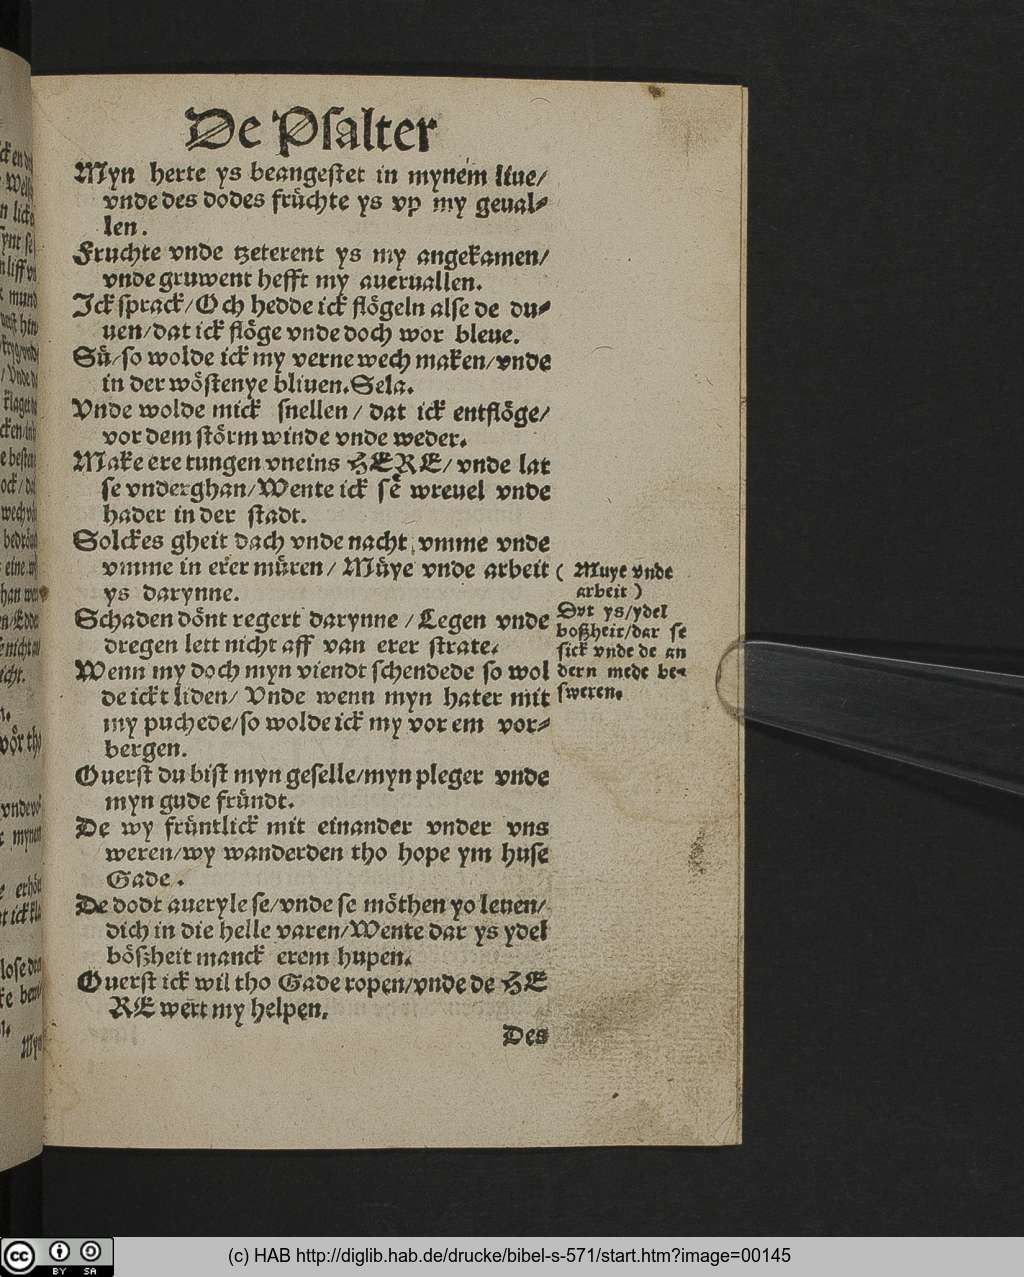 De Psalter
Myn herte ys beangestet in mynem liue/
vnde des dodes früchte ys vp my geual⸗
len.
Fruchte vnde tzeterent ys my angekamen/
vnde gruwent hefft my aueruallen.
Ick sprack/Och hedde ick flögeln alse de du⸗
uen/dat ick flöge vnde doch wor bleue.
Sü/so wolde ick my verne wech maken/vnde
in der wöstenye bliuen.Sela.
Vnde wolde mick snellen/ dat ick entflöge/
vor dem störm winde vnde weder.
Make ere tungen vneins HERE/ vnde lat
se vnderghan/Wente ick sē wreuel vnde
hader in der stadt.
Solckes gheit dach vnde nacht vmme vnde
vmme in erer müren/ Müye vnde arbeit
ys darynne.
Schaden dönt regert darynne/Legen vnde
dregen lett nicht aff van erer strate.
Wenn my doch myn viendt schendede so wol
de ickt liden/ Vnde wenn myn hater mit
my puchede/so wolde ick my vor em vor⸗
bergen.
Ouerst du bist myn geselle/myn pleger vnde
myn gude fründt.
De wy früntlick mit einander vnder vns
weren/wy wanderden tho hope ym huse
Gade.
De dodt aueryle se/vnde se möthen yo leuen/
dich in die helle varen/Wente dar ys ydel
bößheit manck erem hupen.
Ouerst ick wil tho Gade ropen/vnde de HE
RE wert my helpen.
Des
( Muye vnde
arbeit )
Dat ys/ydel
boßheit/dar se
sick vnde de an
dern mede be⸗
sweren.
(c) HAB http://diglib.hab.de/drucke/bibel-s-571/start.htm?image=00145
CC BY SA